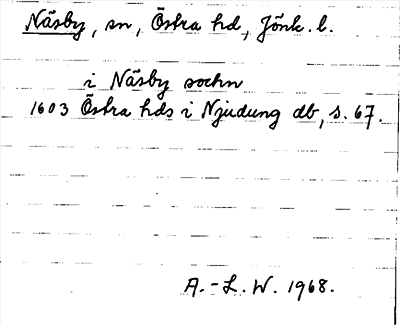 Näsby, sn, Östra hd, Jönk. l.
i Näsby sochn
1603 Östra hds i Njudung db, s. 67.
A.-L. W. 1968.